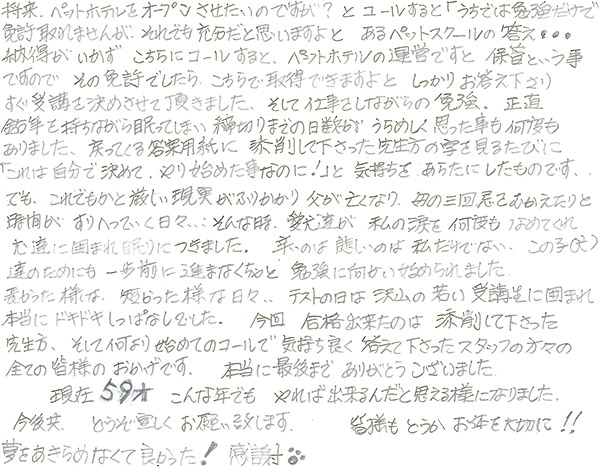 将来、ペットホテルをオープンさせたいのですが？とコールすると「うちでは勉強だけで
免許取れませんが、それでも充分だと思いますよ」とあるペットスクールの答え・・・
納得がいかず こちらにコールすると、ペットホテルの運営ですと 保管という事
ですので その免許でしたら、こちらで取得できますよと しっかりお答え下さり
すぐ受講を決めさせて頂きました、そして仕事をしながらの勉強。正直
鉛筆を持ちながら眠ってしまい 締切りまでの日数が うらめしく思った事も何度も
ありました、戻ってくる答案用紙に 添削して下さった先生方の字を見るたびに
「これは自分で決めて、やり始めた事なのに！」と 気持ちを あらたにしたものです、
でも、これでもかと厳しい現実がふりかかり 父が亡くなり、母の三回忌をむかえたりと
時間が すりへっていく日々、、：そんな時、愛犬達が 私の涙を何度もなめてくれ
犬達に囲まれ眠りにつきました。辛いのは 悲しいのは 私だけでない、この子(犬)
達のためにも 一歩前に進まなくちゃと 勉強に向かい始められました
長かった様な、短かった様な日々、、テストの日は 沢山の若い受講生に囲まれ
本当に ドキドキしっぱなしでした。今回 合格出来たのは 添削して下さった
先生方、そして何より始めてのコールで 気持ち良く 答えて下さったスタッフの方々の
全ての皆様の おかげです、本当に最後まで ありがとうございました
現在 59才 こんな年でも やれば出来るんだと思える様になりました、
今後共 どうぞ宜しく お願い致します 皆様も どうか お体を大切に！！
夢をあきらめなくて 良かった！ 感謝